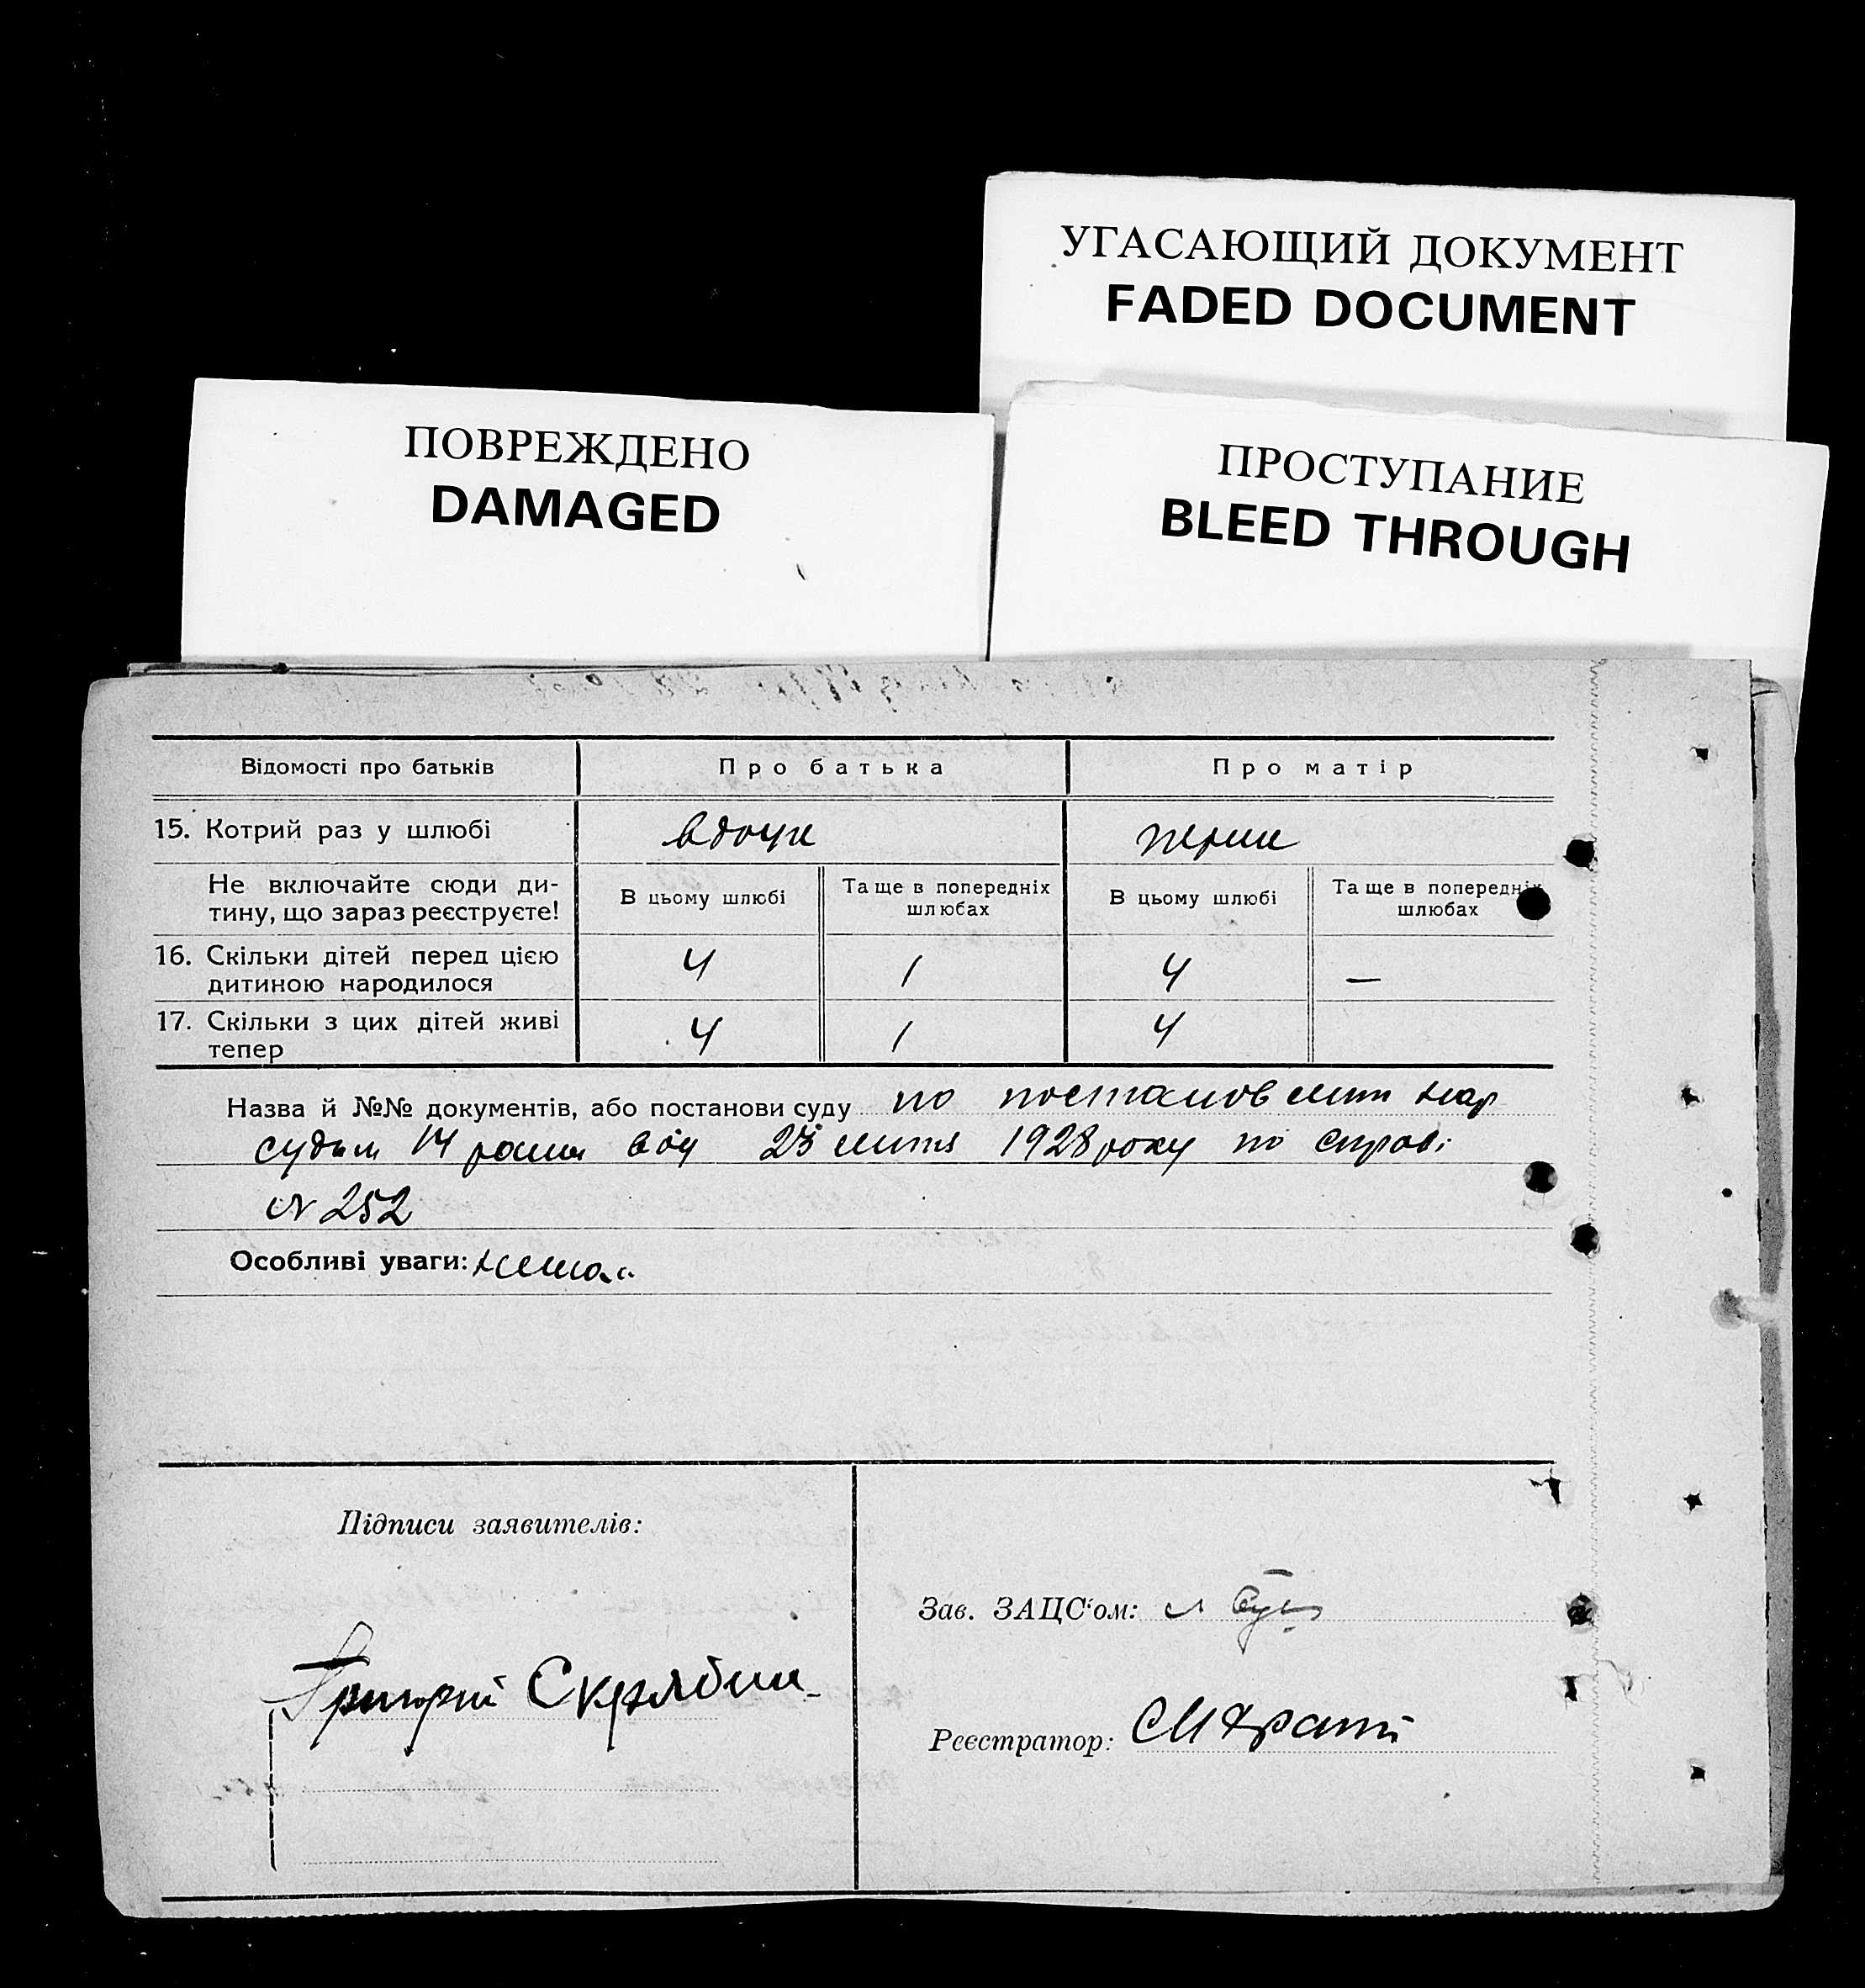 УГАСАЮЩИЙ ДОКУМЕНТ
FADED DOCUMENT
ПОВРЕЖДЕНО
DAMAGED
ПРОСТУПАНИЕ
BLEED THROUGH
Відомості про батьків Про батька Про матір
15. Котрий раз у шлюбі вдруге перший
Не включайте сюди ди-
тину, що зараз реєструєте!
В цьому шлюбі
Та ще в попередніх
шлюбах
В цьому шлюбі
Та ще в попередніх
шлюбах
16. Скільки дітей перед цією
дитиною народилося
4 1 4 —
17. Скільки з цих дітей живі
тепер
4 1 4
Назва й №№ документів, або постанови суду по постанов нар
14 від 1928 року по справі
№ 252
Особливі уваги: немає
Підписи заявителів:
Григорий Скрябин
Зав. ЗАЦС'ом:
Реєстратор: